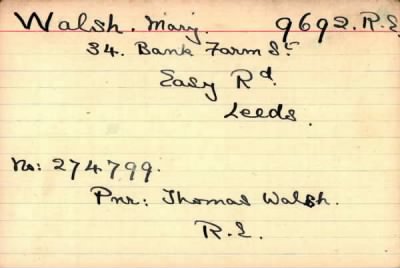 Walsh. Mary. 9692. R.E.
34. Bank Farm St.
Easy Rd.
Leeds.
No: 274799.
Pnr: Thomas Walsh.
R.E.